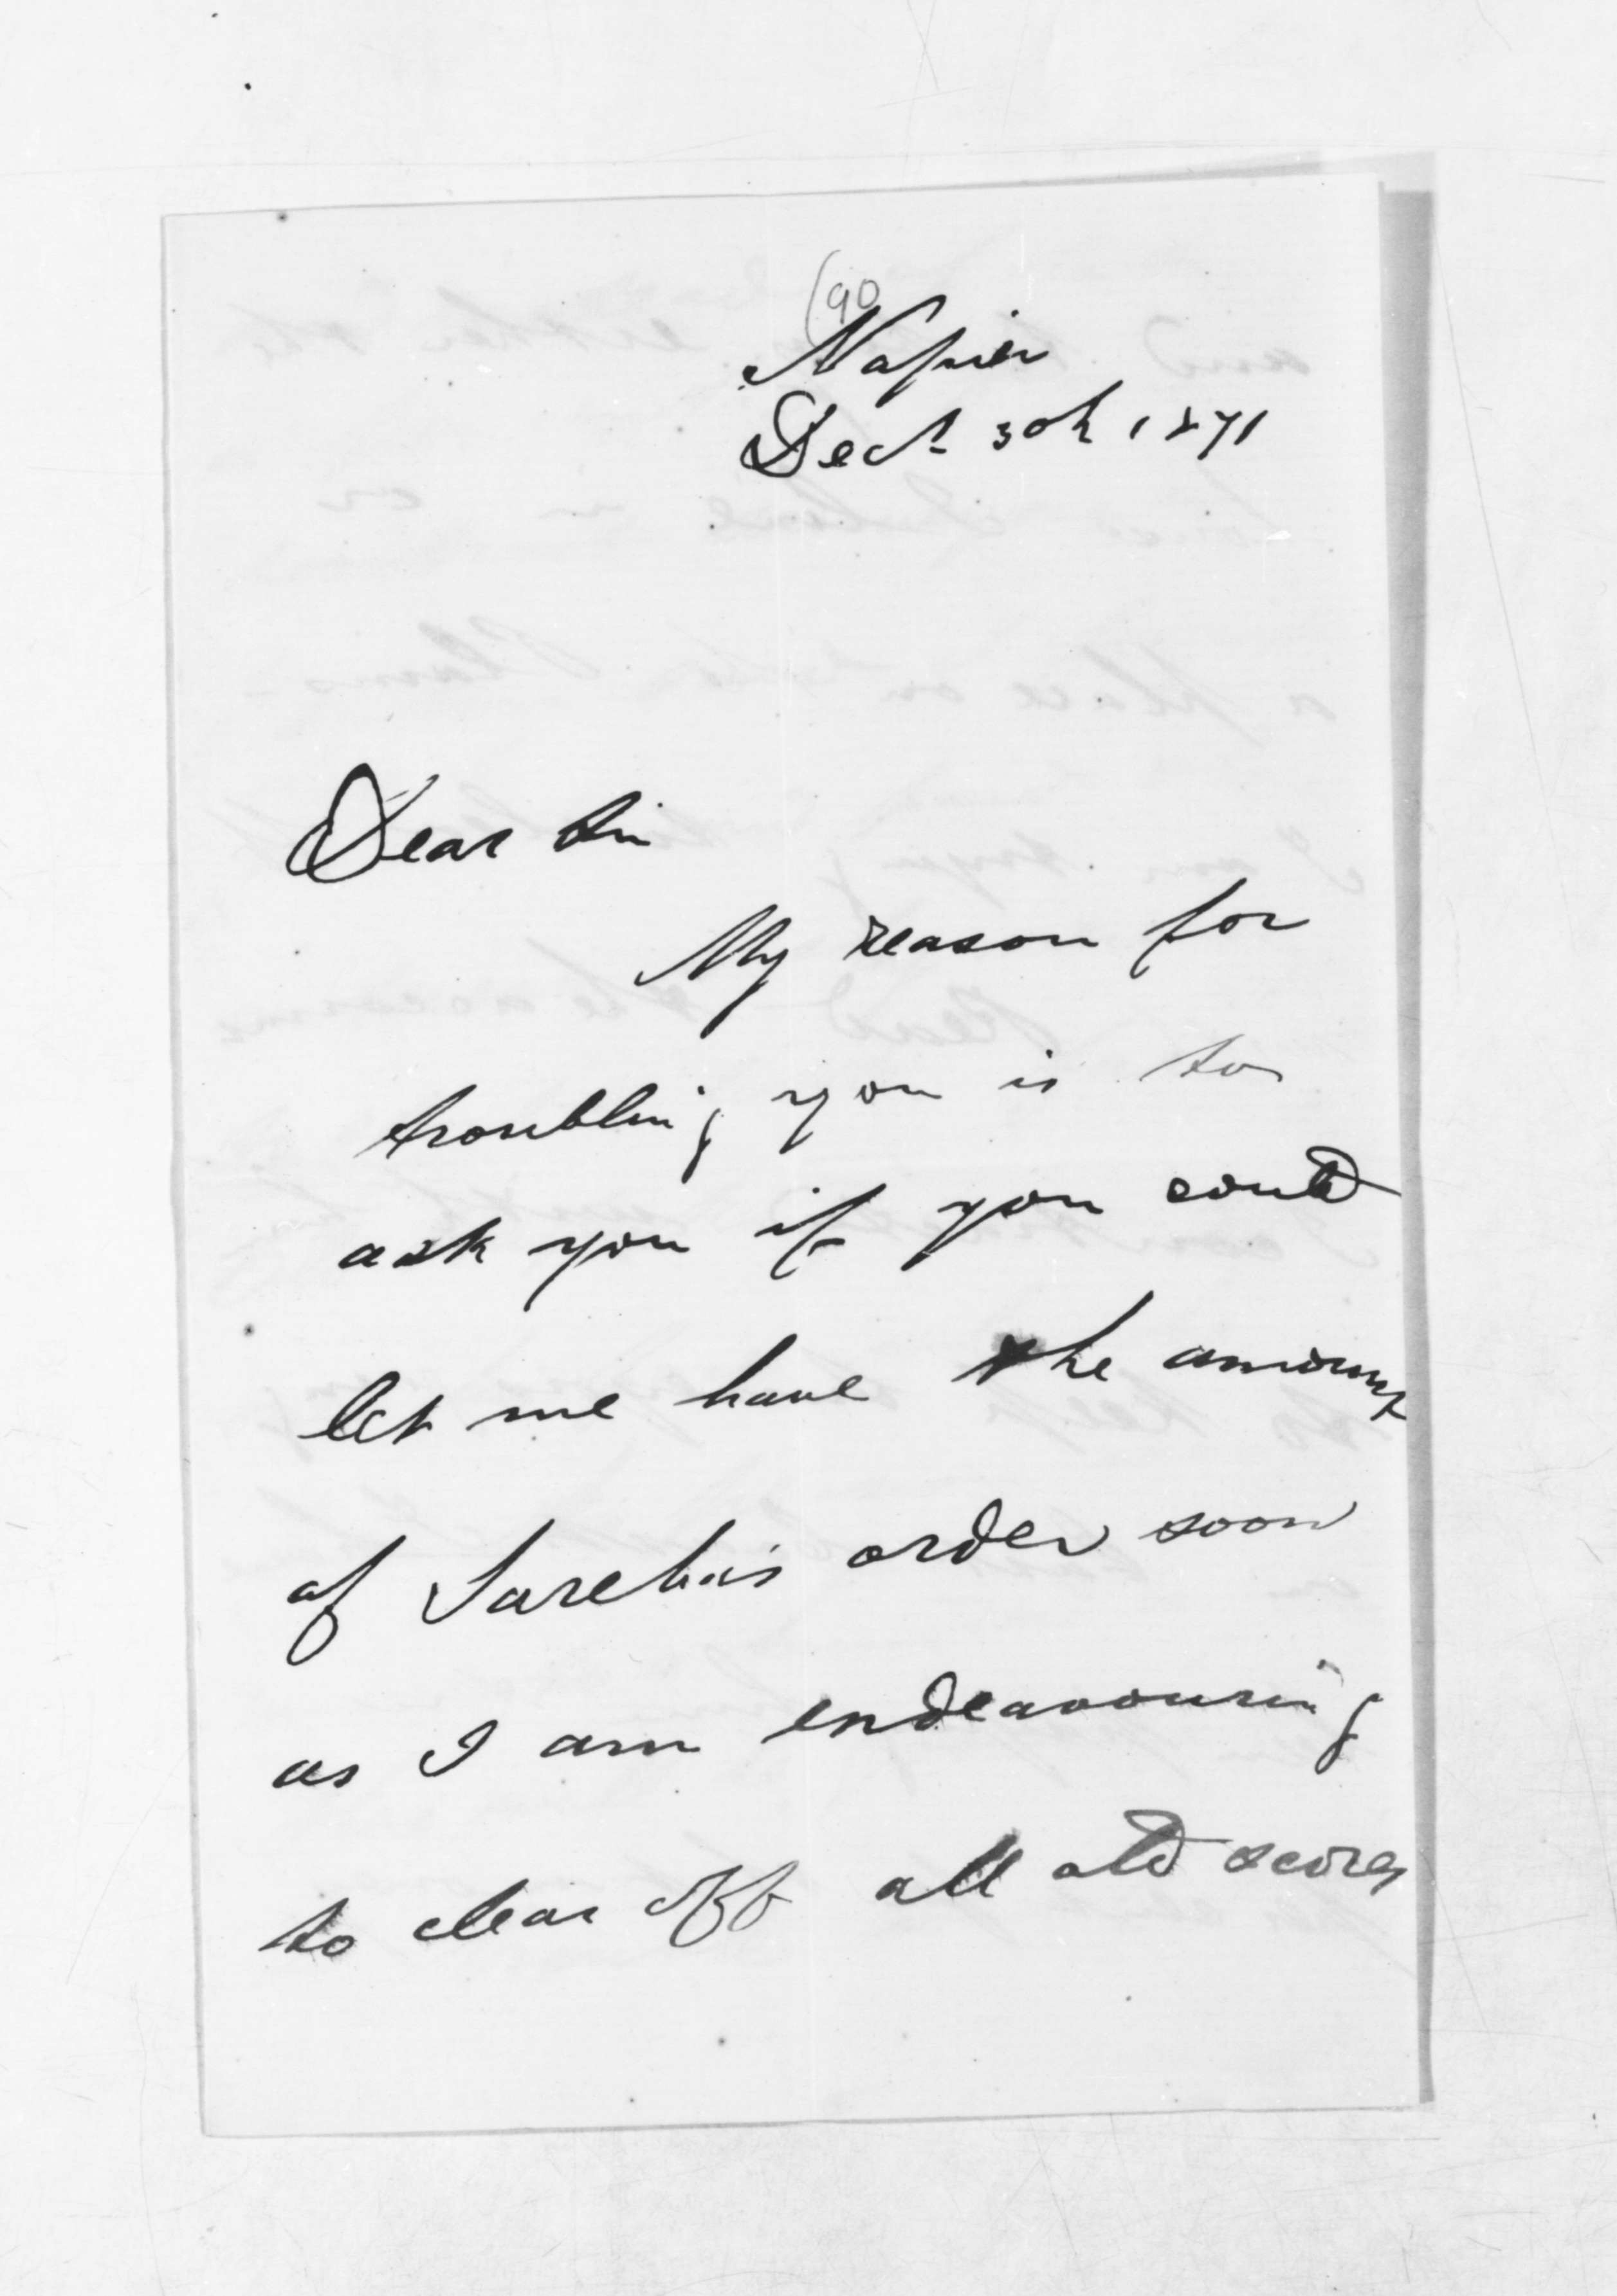 (90
Napier
Decr 30th 1871
Dear Sir
My reason for
troubling you is to
ask you if you could
let me have the amount
of Tareha's order soon
as I am endeavouring
to clear off all old scores